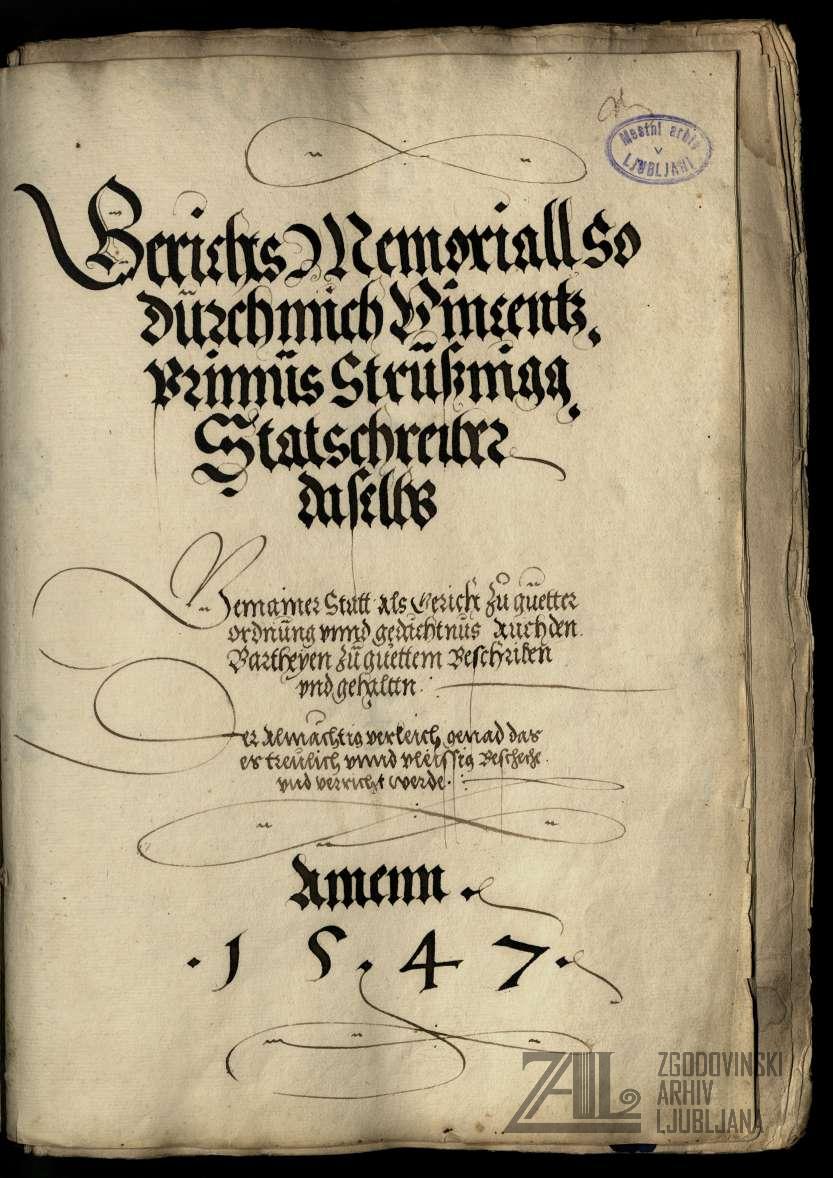 Mestni arhiv
v
LJUBLJANI
Gerichts Memoriall So
durch mich Vincentz
Primus Strüßnigg
Statschreiber
daselbs
Gemainer Statt als Gericht zu guetter
ordnung vnnd gedächtnus auch den
Partheyen zu guettem Beschriben
vnd gehaltn
Der Almächtig verleich genad das
es treulich vnnd vleissig Beschehe
vnd verricht werde
Amenn
1547
ZAL
ZGODOVINSKI
ARHIV
LJUBLJANA